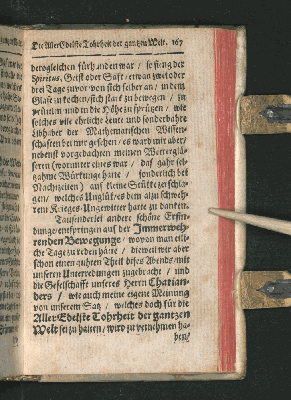 Die AllerEdelste Tohrheit der gantzen Welt. 167
derogleichen fürhanden war / so fieng der
Spiritus, Geist oder Saft / etwan zwei oder
drei Tage zuvor von sich selber an / in dem
Glase zu kochen / sich stark zu bewegen / zu
prüntzen und in die Höhe zu sprützen / wie
solches viele ehrliche Leute und sonderbahre
Libhaber der Mathematischen Wissen-
schaften bei mir gesehen / es ward mir aber /
nebenst vorgedachten meinen Wetterglä-
sern (worunter eines war / daß gahr selt-
zahme Würkunge hatte / sonderlich bei
Nachtzeiten) auf kleine Stükke zerschla-
gen / welches Unglük ich dem alzuschweh-
ren Krieges-Ungewitter hatte zu danken.
Tausenderlei andere schöne Erfin-
dunge / entspringen auf der Immerweh-
renden Bewegunge / wovon man etli-
che Tage zu reden hätte / dieweil wir aber
schon einen guhten Theil dises Abends mit
unseren Unterredungen zugebracht / und
die Gesellschaft unseres Herrn Charian-
ders / wie auch meine eigene Meinung
von unserem Satz / welches doch für die
AllerEdelste Tohrheit der gantzen
Welt sei zu halten / wird zu vernehmen ha-
ben /